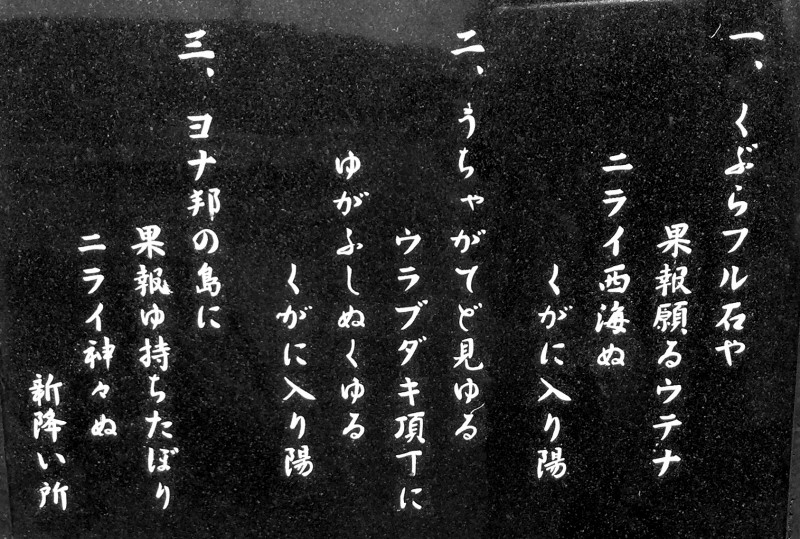 一、くぶらフル石や
果報願るウテナ
ニライ西海ぬ
くがに入り陽
二、うちゃがてど見ゆる
ウラブダキ頂丁に
ゆがふしぬくゆる
くがに入り陽
三、ヨナ邦の島に
果報ゆ持ちたぼり
ニライ神々ぬ
新降い所